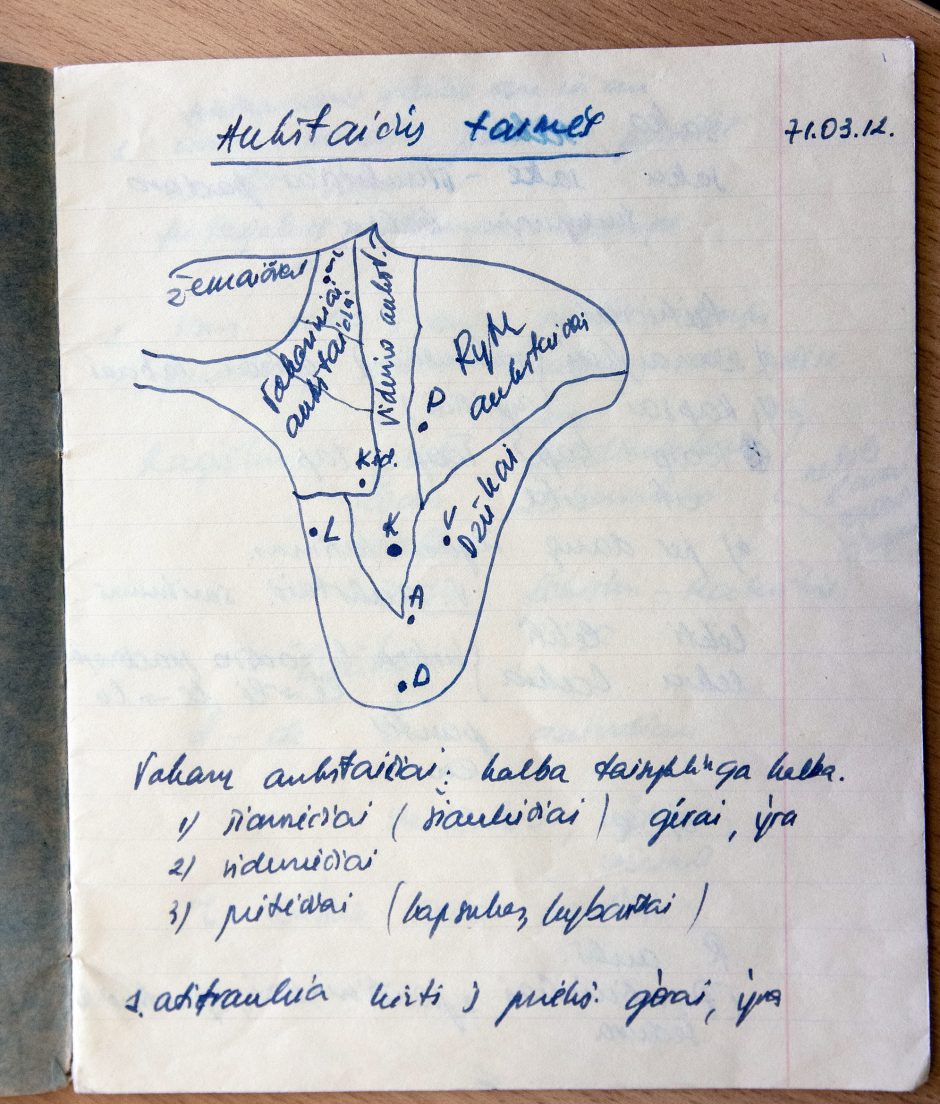 Aukštaičių tarmės
71.03.12.
Žemaičiai
Vakariniai
aukštaičiai
Vidurio aukšt.
Rytų
aukštaičiai
P
Kėd.
L
K
V
Dzūkai
A
D
Vakarų aukštaičiai: kalba taisyklinga kalba.
1) šiauriečiai (šiauliečiai) gėrai, ýra
2) viduriečiai
3) pietiečiai (kapsukas, kybartai)
1. atitraukia kirtį į priekį gėrai, ýra